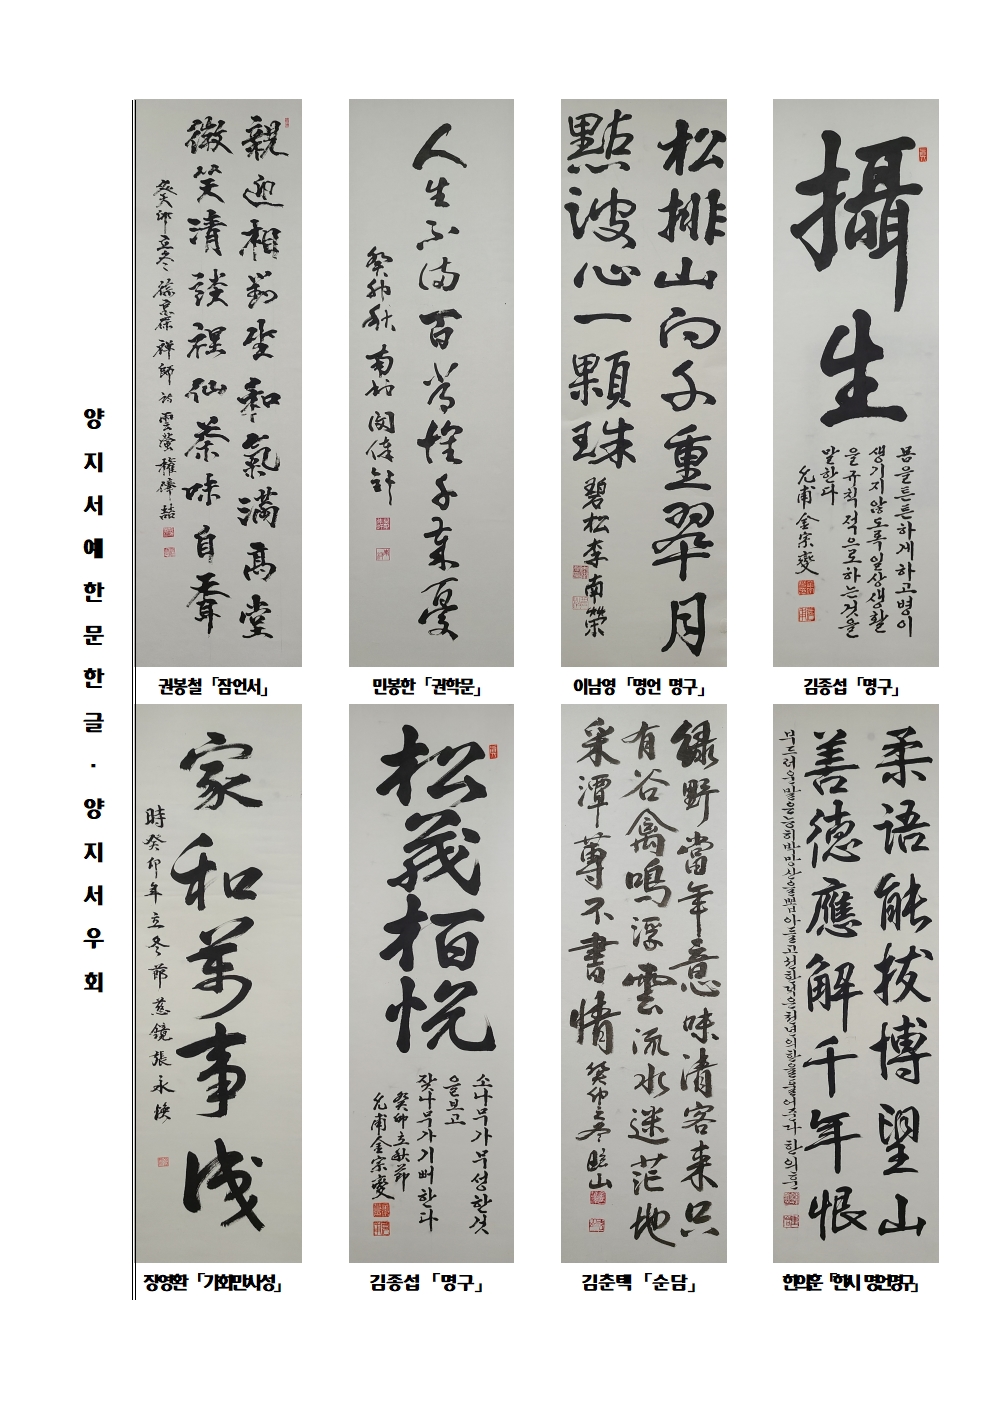 양지서예한문한글 · 양지서우회
親迎相對坐和氣滿高堂
微笑清談裡仙茶味自
癸卯立冬
권봉철 「잠언서」
人生不滿百常懷千歲憂
癸卯秋 南
민봉한 「권학문」
松排山面千重翠月
點波心一顆珠
碧松李南榮
이남영 「명언 명구」
攝生
몸을튼튼하게하고병이
생기지않도록일상생활
을규칙적으로하는것을
말한다
允甫金宗燮
김종섭 「명구」
家和萬事成
時癸卯年立冬節慈鏡張永煥
장영환 「가화만사성」
松茂栢悅
소나무가무성한것
을보고
잣나무가기뻐한다
癸卯立秋節
允甫金宗燮
김종섭 「명구」
綠野當年意味清客來只
有谷禽鳴浮雲流水迷茫地
采潭蓴不書情
癸卯立冬 山
김춘택 「순담」
柔語能拔博望山
善德應解千年恨
부드러운말은능히박망산을뽑아들고선한덕은천년의한을풀어준다 한의훈
한의훈 「한시 명언명구」